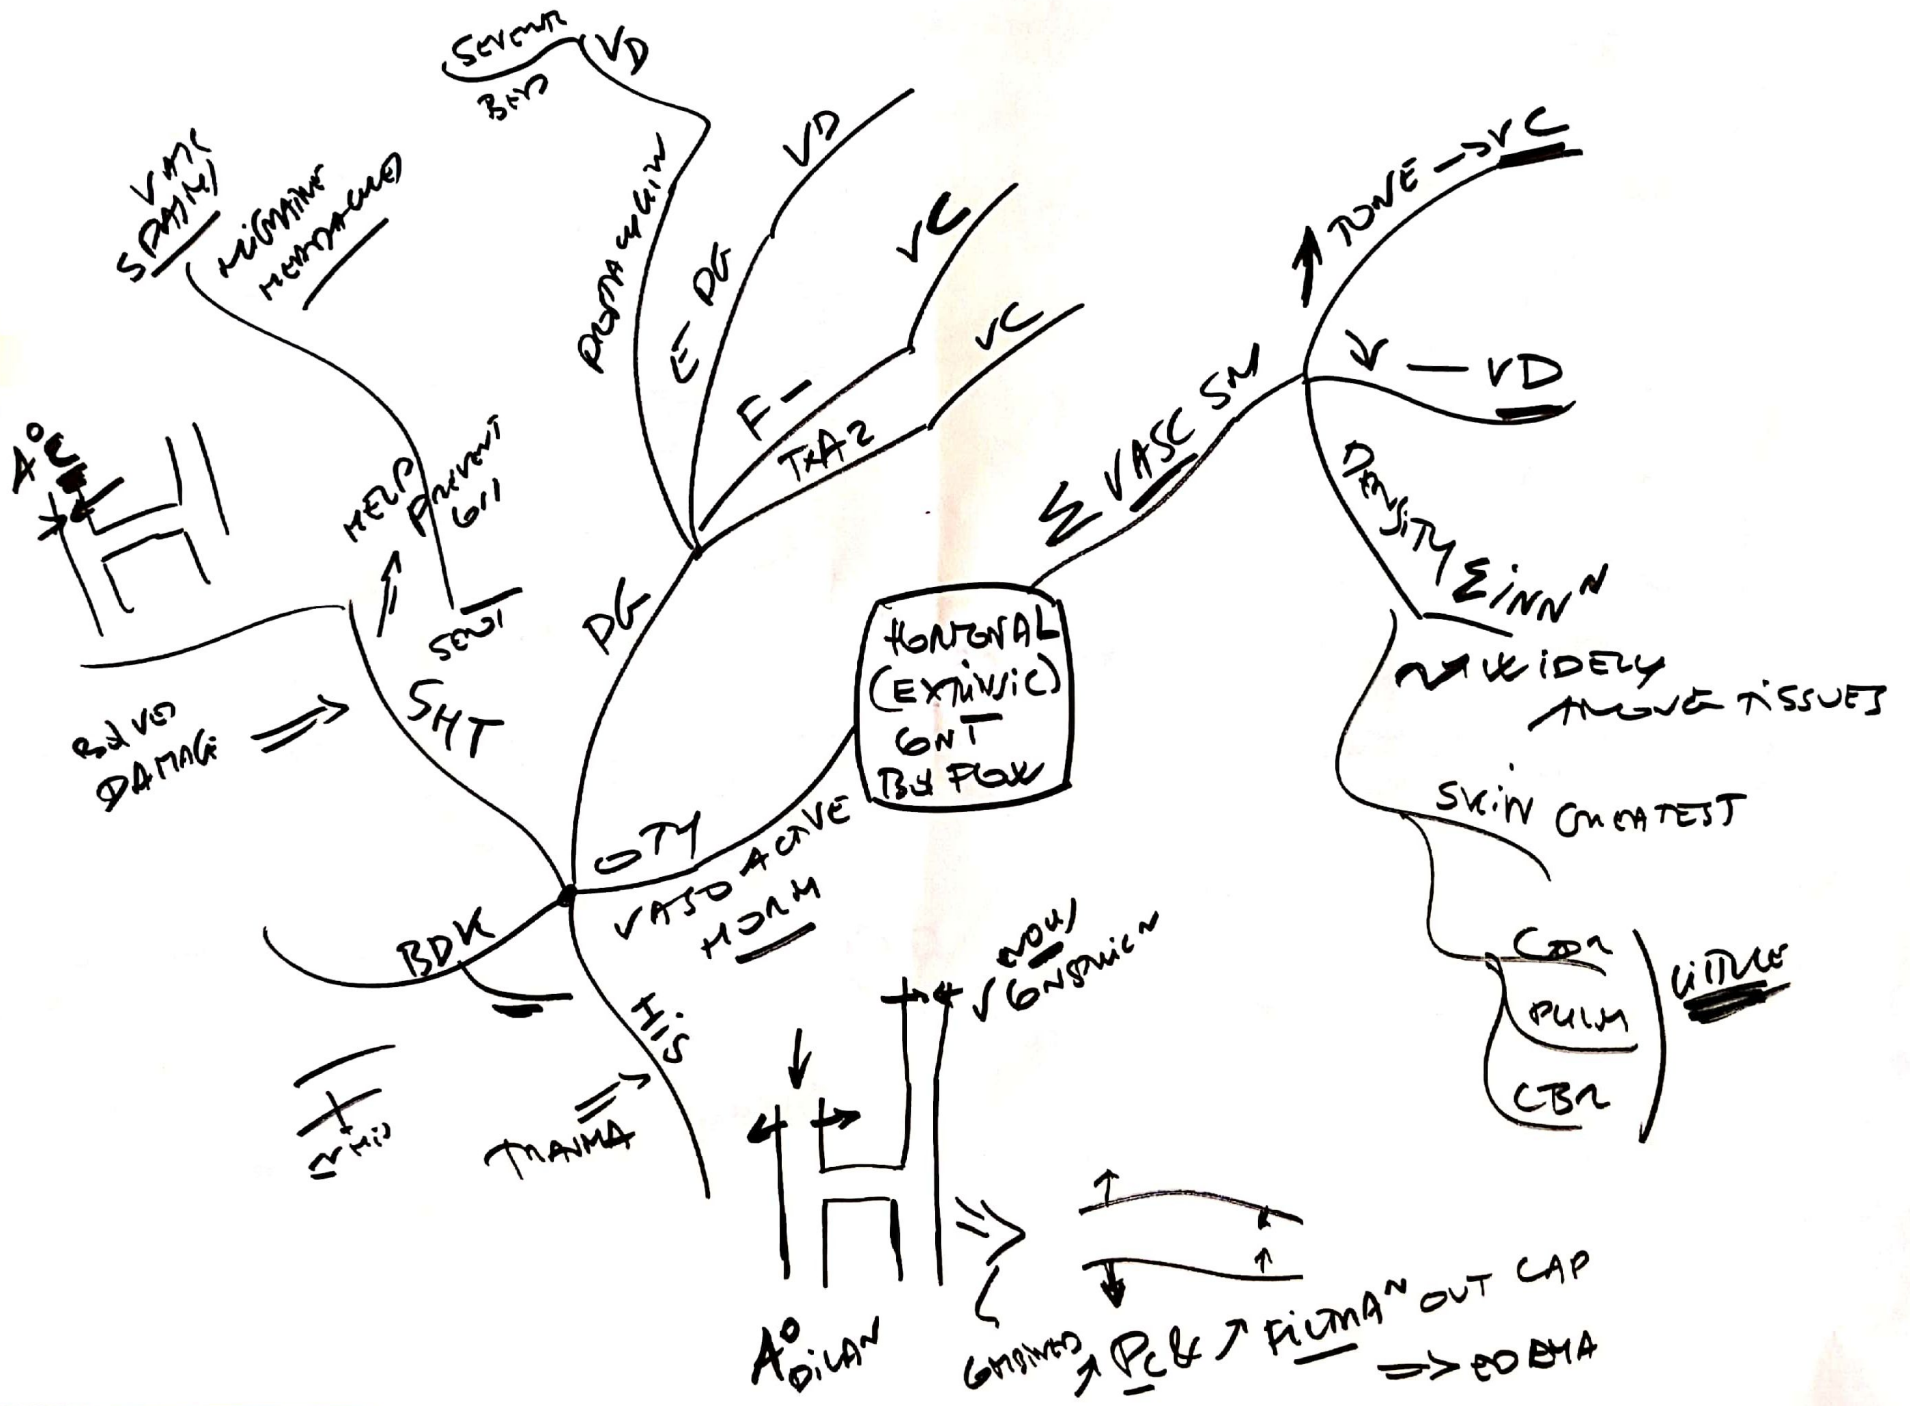 HORMONAL
(EXTRINSIC)
CONT
BLD FLOW
Σ VASC SM
↑ TONE → VC
↓ — VD
DENSITY Σ INN N
WIDELY
AMONG TISSUES
SKIN GREATEST
COR
PULM
CBR
LITTLE
OTH
VASOACTIVE
HORM
PG
PROSTACYCLIN
SEVERAL
BEDS
VD
E - PG
VD
F -
VC
TXA2
VC
5HT
BLD VES
DAMAGE
HELP
PREVENT
VASC
SPASM
MIGRAINE
HEADACHES
A°C
BDK
HIS
TRAUMA
VENOUS
CONSTRIC N
A°
DILAN
COMBINED ↑ PC & ↑ FILTRA N OUT CAP
⇒ EDEMA